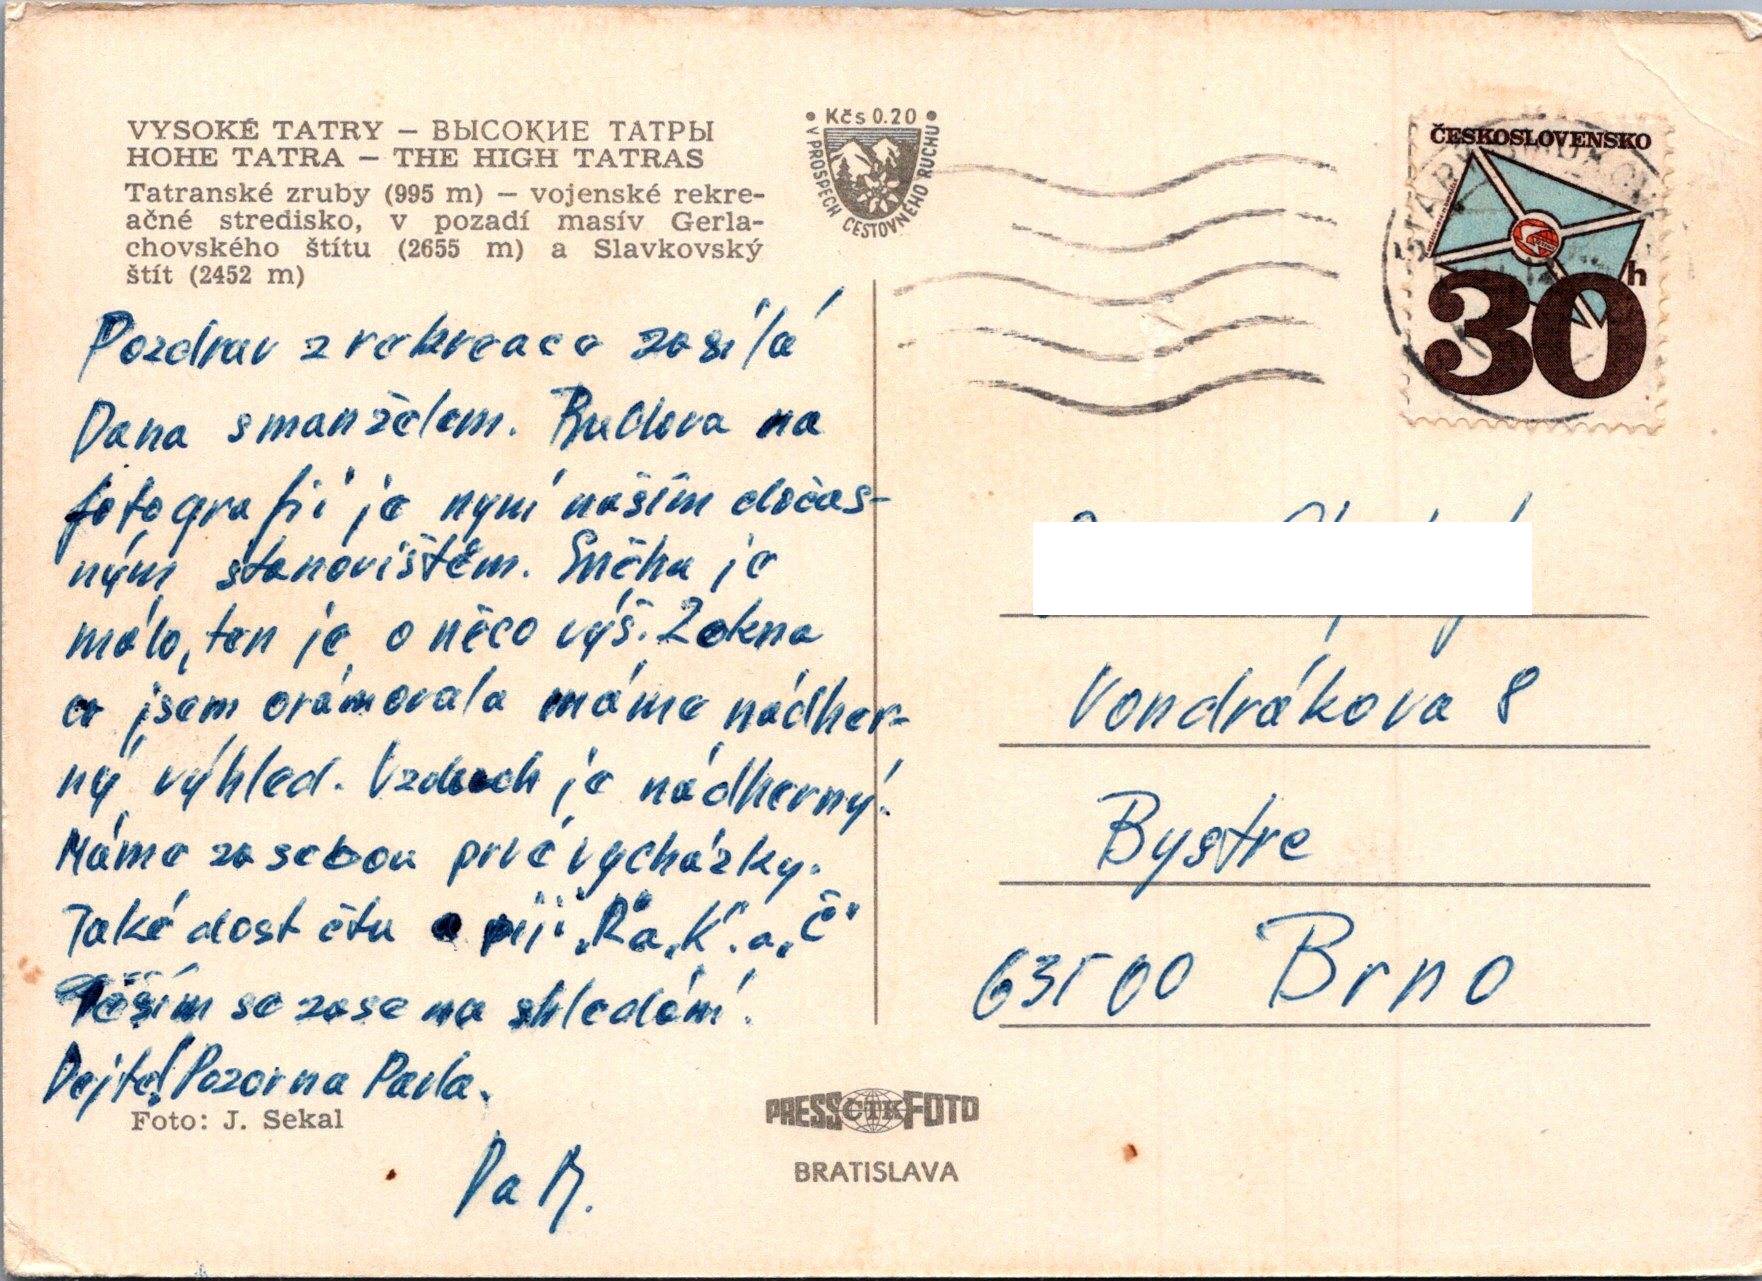 VYSOKÉ TATRY – ВЫСОКИЕ ТАТРЫ
HOHE TATRA – THE HIGH TATRAS
Tatranské zruby (995 m) – vojenské rekre-
ačné stredisko, v pozadí masív Gerla-
chovského štítu (2655 m) a Slavkovský
štít (2452 m)
• Kčs 0.20 •
V PROSPECH CESTOVNÉHO RUCHU
ČESKOSLOVENSKO
30 h
Pozdrav z rekreace zasílá
Dana s manželem. Budova na
fotografii je nyní naším dočas-
ným stanovištěm. Sněhu je
málo, ten je o něco výš. Z okna
co jsem orámovala máme nádher-
ný výhled. Vzduch je nádherný.
Máme za sebou prvé vycházky.
Také dost čtu a piji „R" a „K" a „Č"
Těším se zase na shledání.
Dejte! Pozor na Pavla.
Da M.
Vondrákova 8
Bystrc
63500 Brno
Foto: J. Sekal
PRESS ČTK FOTO
BRATISLAVA